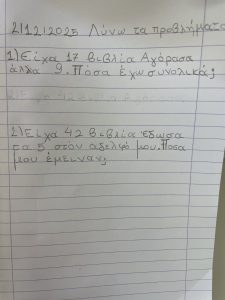 2/12/2025 Λύνω τα προβλήματα
1) Είχα 17 βιβλία Αγόρασα
άλλα 9. Πόσα έχω συνολικά;
2) Είχα 42 βιβλία έδωσα
τα 5 στον αδελφό μου. Ποσα
μου έμειναν;